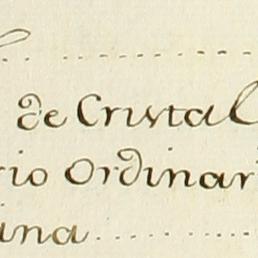 de Cristal
rio Ordinar
ina